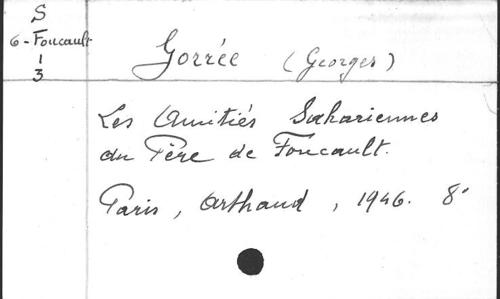 S
6-Foucault
1
3
Gorrée (Georges)
Les Amitiés Sahariennes
du Père de Foucault.
Paris, Arthaud, 1946. 8°